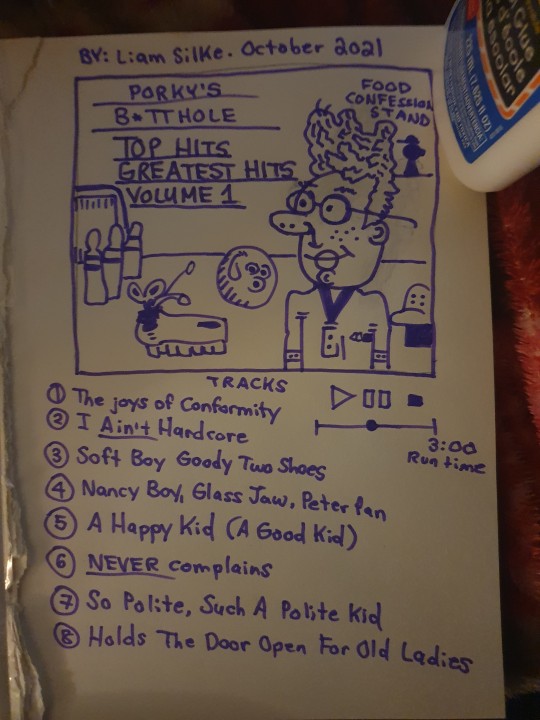 BY: Liam Silke. October 2021
PORKY'S
B*TTHOLE
TOP HITS
GREATEST HITS
VOLUME 1
FOOD
CONFESSION
STAND
TRACKS
① The joys of Conformity
② I Ain't Hardcore
③ Soft Boy Goody Two Shoes
④ Nancy Boy, Glass Jaw, Peter Pan
⑤ A Happy Kid (A Good Kid)
⑥ NEVER complains
⑦ So Polite, Such A Polite Kid
⑧ Holds The Door Open For Old Ladies
3:00
Run time
Glue
d'école
escolar
(7.625 fl oz)